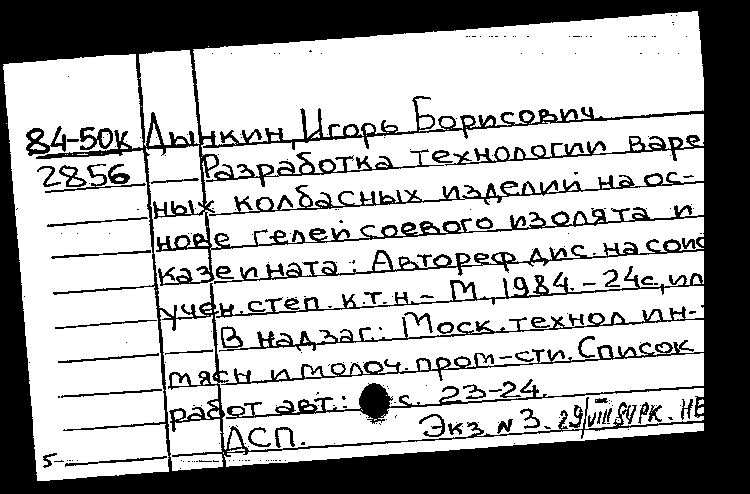 84-50к Дынкин, Игорь Борисович.
2856 Разработка технологии варе
ных колбасных изделий на ос-
нове гелей соевого изолята и
казеината: Автореф дис. на соис
учен. степ. к.т.н. - М., 1984. - 24с, ил
В надзаг.: Моск. технол ин-т
мясн и молоч. пром-сти. Список
работ авт.: с. 23-24.
ДСП. Экз. N 3. 29/VIII 84 РК. НЕ
5-